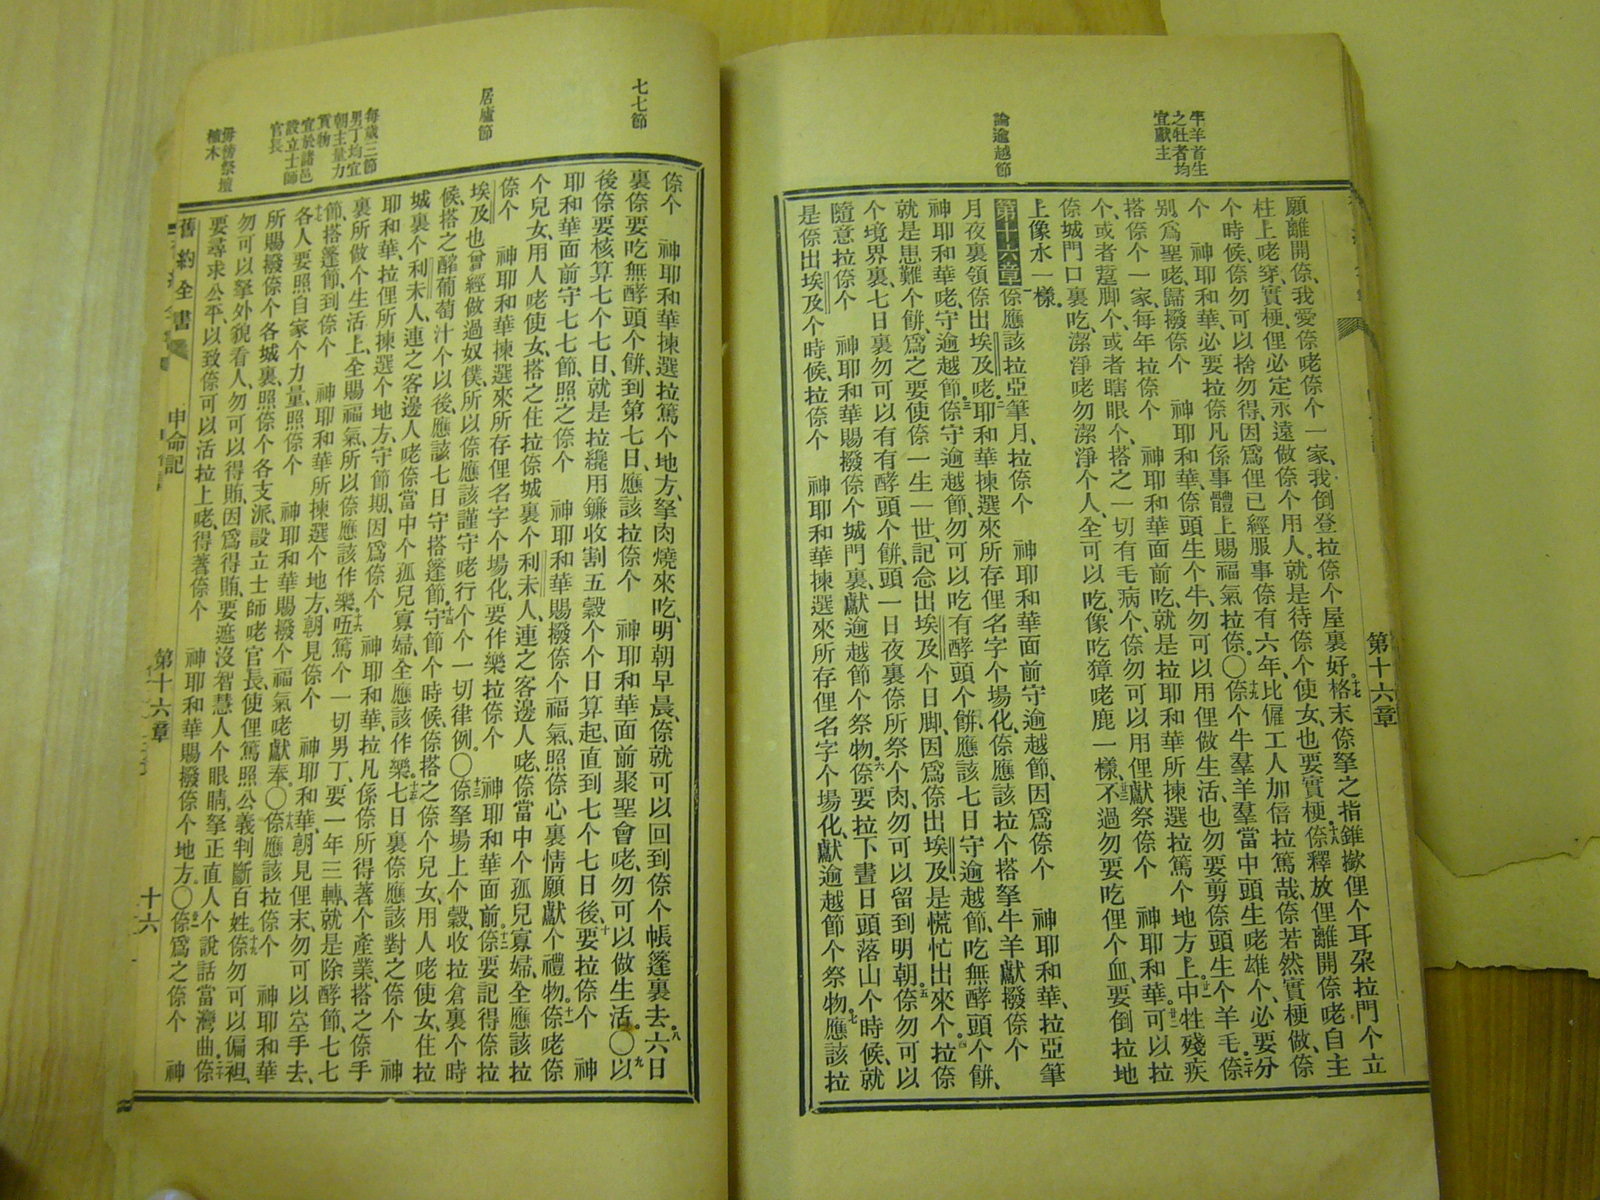 第十六章
牛羊首生
之牡者均
宜獻主
論逾越節
願離開㑚、我愛㑚咾㑚个一家、我倒登拉㑚个屋裏好。十七格末㑚拏之指錐撳俚个耳朶拉門个立
柱上咾穿、實梗、俚必定永遠做㑚个用人。就是待㑚个使女、也要實梗。十八㑚釋放俚離開㑚咾自主
个時候、㑚勿可以捨勿得、因爲俚已經服事㑚有六年、比僱工人加倍拉篤哉、㑚若然實梗做、㑚
个 神耶和華、必要拉㑚凡係事體上賜福氣拉㑚。〇十九㑚个牛羣羊羣當中頭生咾雄个、必要分
别爲聖咾、歸撥㑚个 神耶和華、㑚頭生个牛、勿可以用俚做生活、也勿要剪㑚頭生个羊毛。二十㑚
搭㑚个一家、每年拉㑚个 神耶和華面前吃、就是拉耶和華所揀選拉篤个地方上。廿一牲殘疾
个、或者蹩脚个、或者瞎眼个、搭之一切有毛病个、㑚勿可以用俚獻祭㑚个 神耶和華。廿二可以拉
㑚城門口裏吃、潔淨咾勿潔淨个人、全可以吃、像吃獐咾鹿一樣。廿三不過勿要吃俚个血、要倒拉地
上像水一樣。
第十六章 一㑚應該拉亞筆月、拉㑚个 神耶和華面前守逾越節、因爲㑚个 神耶和華、拉亞筆
月夜裏領㑚出埃及咾。二耶和華揀選來所存俚名字个場化、㑚應該拉个搭拏牛羊獻撥㑚个
神耶和華咾、守逾越節。三㑚守逾越節、勿可以吃有酵頭个餅、應該七日守逾越節、吃無酵頭个餅、
就是患難个餅、爲之要使㑚一生一世、記念出埃及个日脚、因爲㑚出埃及是慌忙出來个。四拉㑚
个境界裏、七日裏勿可以有有酵頭个餅、頭一日夜裏㑚所祭个肉、勿可以留到明朝。五㑚勿可以
隨意拉㑚个 神耶和華賜撥㑚个城門裏、獻逾越節个祭物。六㑚要拉下晝日頭落山个時候、就
是㑚出埃及个時候、拉㑚个 神耶和華揀選來所存俚名字个場化、獻逾越節个祭物。七應該拉
七七節
居廬節
每歲三節
男丁均宜
朝主量力
貢物
宜於諸邑
設立士師
官長
毋傍祭壇
植木
㑚个 神耶和華揀選拉篤个地方、拏肉燒來吃、明朝早晨、㑚就可以回到㑚个帳篷裏去。八六日
裏㑚要吃無酵頭个餅、到第七日、應該拉㑚个 神耶和華面前聚聖會咾、勿可以做生活。〇九以
後㑚要核算七个七日、就是拉纔用鐮收割五穀个个日算起、直到七个七日後、十要拉㑚个 神
耶和華面前守七七節、照之㑚个 神耶和華賜撥㑚个福氣、照㑚心裏情願獻个禮物。十一㑚咾㑚
个兒女、用人咾使女、搭之住拉㑚城裏个利未人、連之客邊人咾、㑚當中个孤兒寡婦、全應該拉
㑚个 神耶和華揀選來所存俚名字个場化、要作樂拉㑚个 神耶和華面前。十二㑚要記得㑚拉
埃及也曾經做過奴僕、所以㑚應該謹守咾行个个一切律例。〇十三㑚拏場上个穀、收拉倉裏个時
候、搭之醡葡萄汁个以後、應該七日守搭篷節。十四守節个時候、㑚搭之㑚个兒女、用人咾使女、住拉
城裏个利未人、連之客邊人咾㑚當中个孤兒寡婦、全應該作樂。十五七日裏㑚應該對之㑚个 神
耶和華、拉俚所揀選个地方、守節期、因爲㑚个 神耶和華、拉凡係㑚所得著个產業、搭之㑚手
裏所做个生活上、全賜福氣、所以㑚應該作樂。十六㑚篤个一切男丁、要一年三轉、就是除酵節、七七
節、搭篷節、到㑚个 神耶和華所揀選个地方、朝見㑚个 神耶和華、朝見俚末、勿可以空手去、
十七各人要照自家个力量、照㑚个 神耶和華賜撥个福氣咾獻奉。〇十八㑚應該拉㑚个 神耶和華
所賜撥㑚个各城裏、照㑚个各支派、設立士師咾官長、使俚篤照公義判斷百姓。十九㑚勿可以偏袒、
勿可以拏外貌看人、勿可以得賄、因爲得賄、要遮沒智慧人个眼睛、拏正直人个說話當灣曲。二十㑚
要尋求公平、以致㑚可以活拉上咾、得著㑚个 神耶和華賜撥㑚个地方。〇廿一㑚爲之㑚个 神
舊約全書 申命記 第十六章 十六